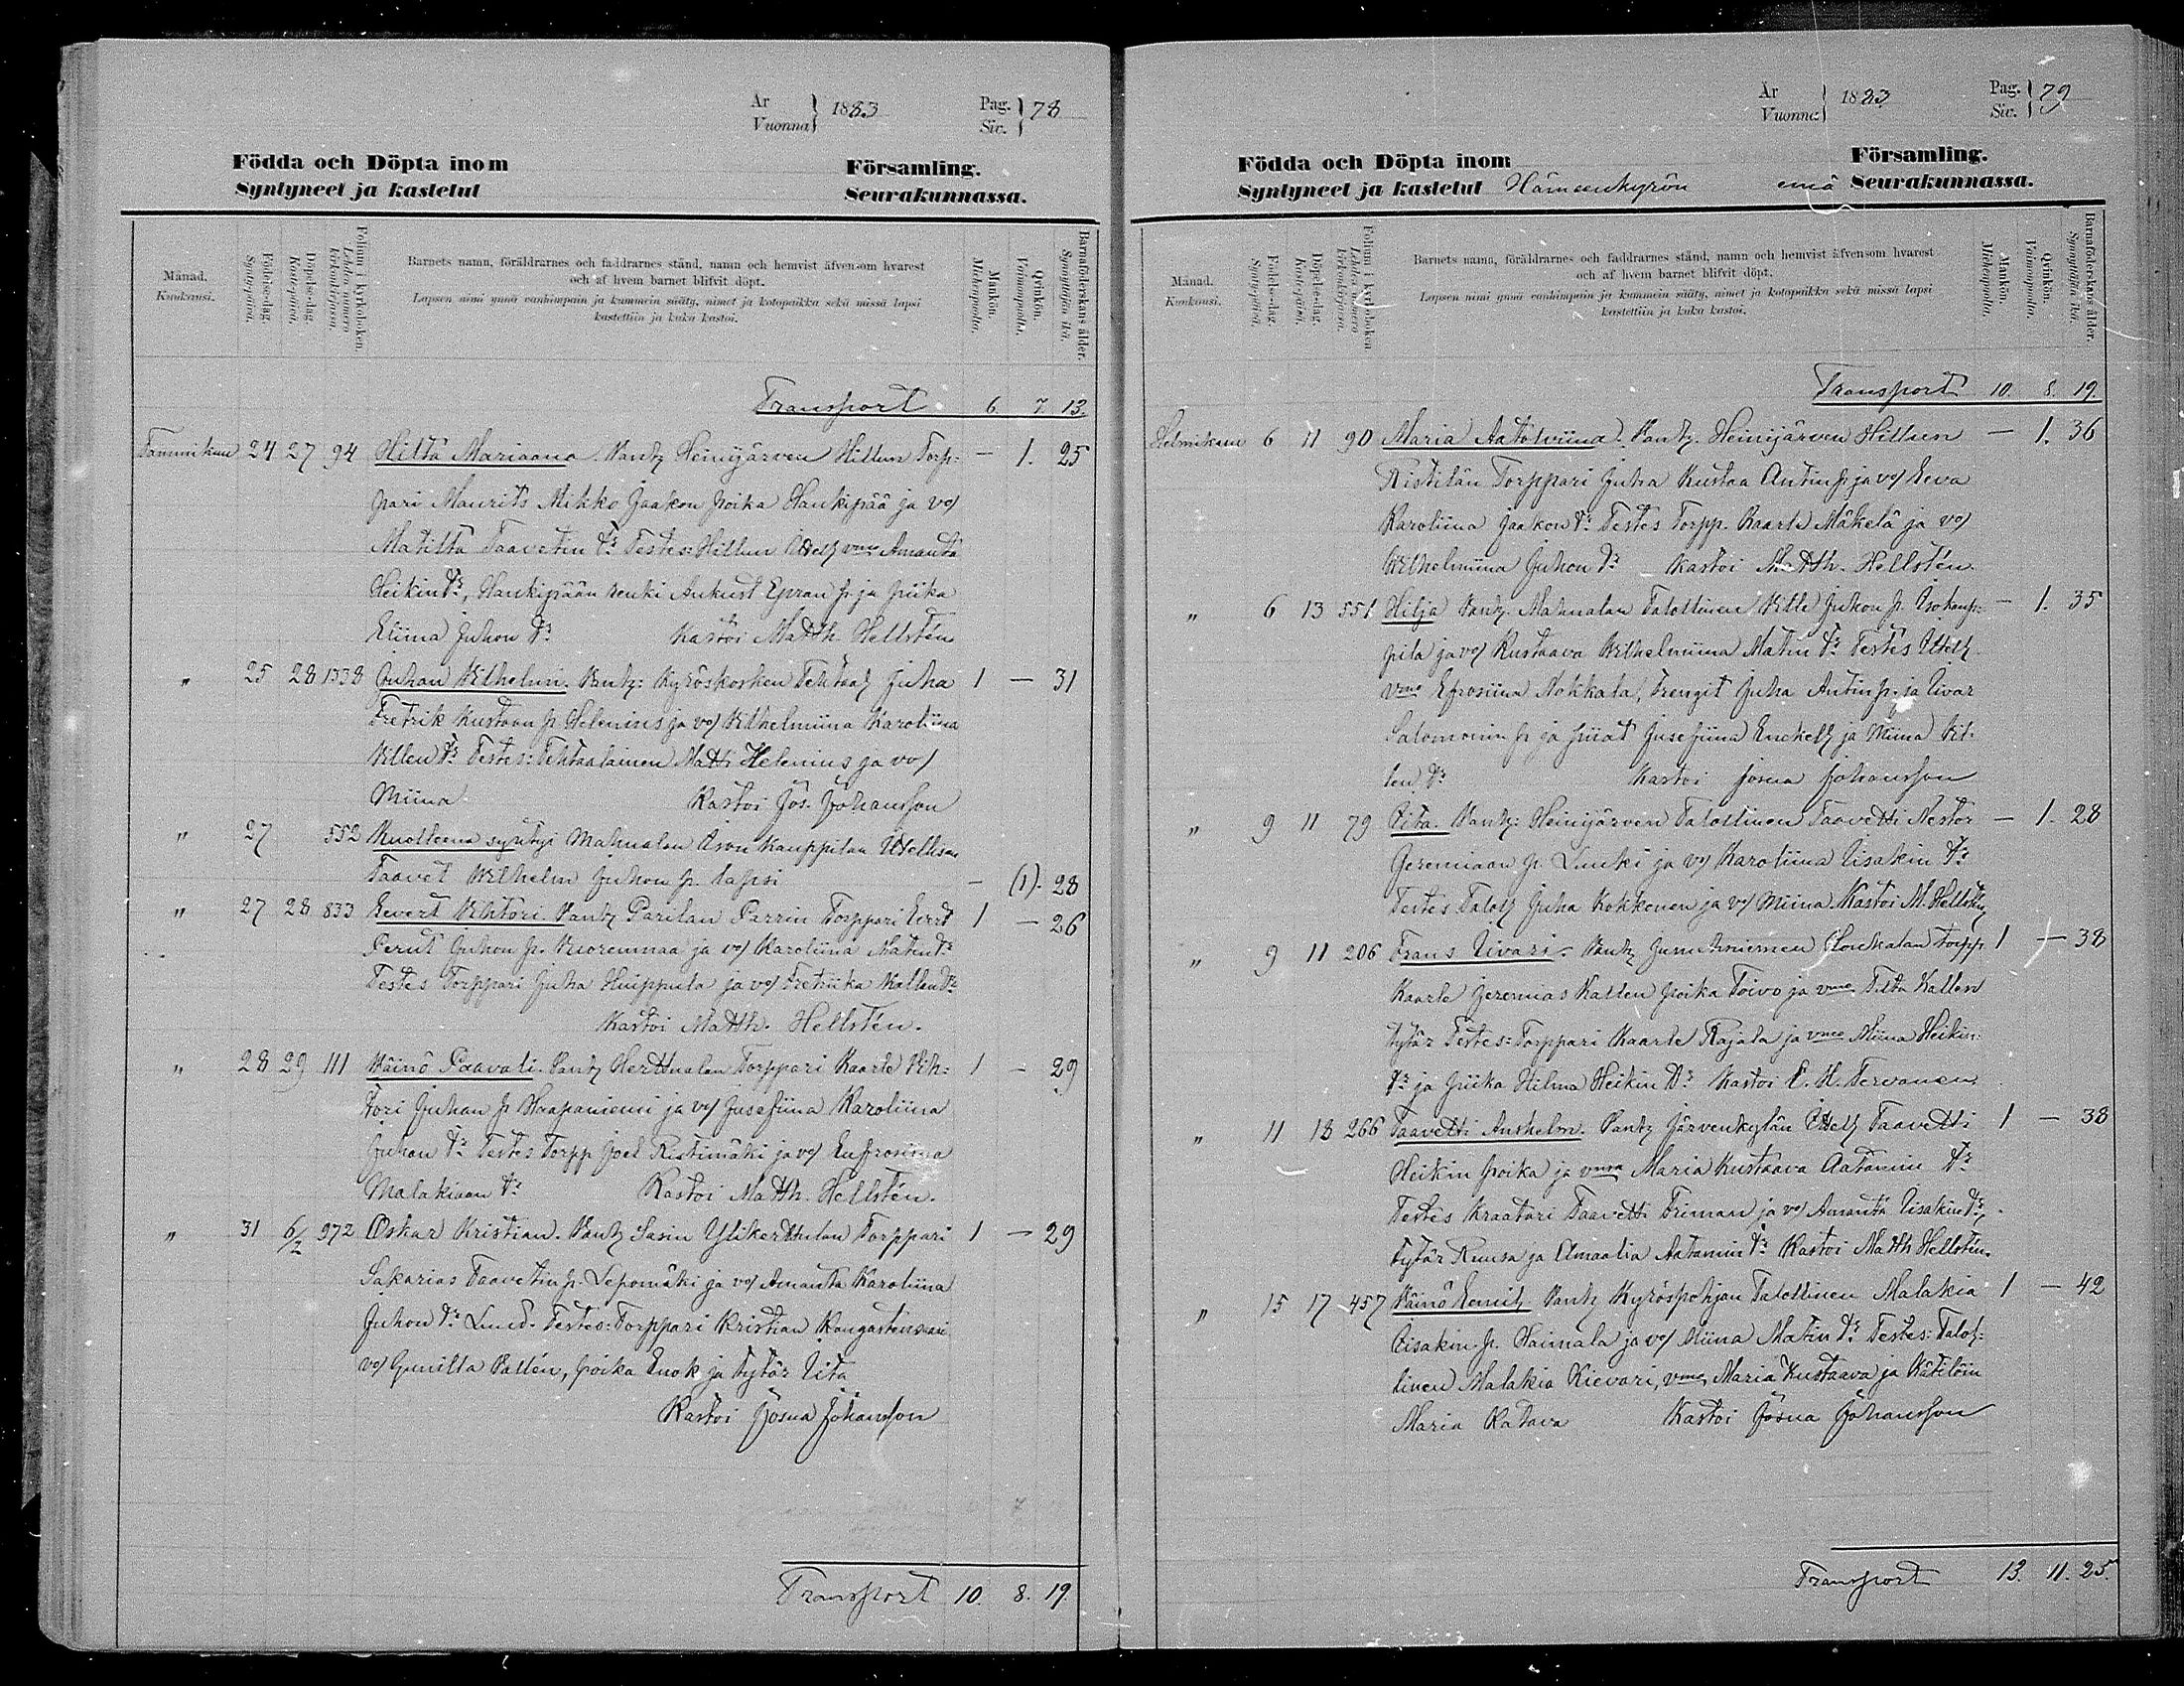 År
Vuonna } 1883 Pag.
Siv. } 78
Födda och Döpta inom Församling.
Syntyneet ja kastetut Seurakunnassa.
Månad.
Kuukausi.
Födelse-dag.
Syntypäivä.
Döpelse-dag.
Kastepäivä.
Folium i kyrkoboken.
Lehden numero kirkonkirjassa.
Barnets namn, föräldrarnes och faddrarnes stånd, namn och hemvist äfvensom hvarest
och af hvem barnet blifvit döpt.
Lapsen nimi ynnä vanhimpain ja kummein sääty, nimet ja kotopaikka sekä missä lapsi
kastettiin ja kuka kastoi.
Mankön.
Miehenpuolia.
Qvinkön.
Vaimonpuolia.
Barnaföderskans ålder.
Synnyttäjän ikä.
Transport 6. 7. 13.
Tammikuu 24 27 94 Hilta Mariaana. Vanh; Heinijärven Hillun Torp- — 1. 25
pari Maurits Mikko Jaakon poika Hankipää ja vo/
Matilta Taavetin tr Testes: Hillun Itell vmo Amanta
Heikin tr, Hankipään renki Aukust Epran p. ja piika
Eliina Juhon tr Kastoi Matth. Hellstén
" 25 28 1338 Juhan Vilhelmi. Vanh: Kyröskosken Tehtaal Juha 1 — 31
Fretrik Kustaan p Helenius ja vo/ Vilhelmiina Karoliina
Villen tr Testes: Tehtaalainen Matti Helenius ja vo/
Miina Kastoi Jos. Johansson
" 27 552 Kuolleena syntyi Mahnalan Ison Kauppilan Itellisen
Taavet Vilhelm Juhon p. lapsi — (1). 28
" 27 28 833 Evert Vihtori. Vanh; Parilan Parrin Torppari Evert 1 — 26
Pernt Juhon p. Vuorenmaa ja vo/ Karoliina Matin tr
Testes Torppari Juha Huippula ja vo/ Fretriika Kallen tr
Kastoi Matth. Hellstén.
" 28 29 111 Väinö Paavali. Vanh; Herttualan Torppari Kaarle Vih- 1 — 29
tori Juhan p Haapaniemi ja vo/ Josefiina Karoliina
Juhan tr Testes Torpp Joel Ristimäki ja vo/ Eufrosiina
Malakiaan tr Kastoi Matth. Hellstén.
" 31 6/2 972 Oskar Kristian. Vanh; Sasin Ylikerttulan Torppari 1 — 29
Sakarias Taavetin p. Lepomäki ja vo/ Amanta Karoliina
Juhon tr Lund. Testes: Torppari Kristian Kangastensaari
vo/ Gunilla Vallén, poika Enok ja tytär Iita
Kastoi Josua Johansson
Transport 10. 8. 19.
År
Vuonna } 1883 Pag.
Siv. } 79
Födda och Döpta inom Församling.
Syntyneet ja kastetut Hämeenkyrön emä Seurakunnassa.
Månad.
Kuukausi.
Födelse-dag.
Syntypäivä.
Döpelse-dag.
Kastepäivä.
Folium i kyrkoboken
Lehden numero kirkonkirjassa.
Barnets namn, föräldrarnes och faddrarnes stånd, namn och hemvist äfvensom hvarest
och af hvem barnet blifvit döpt.
Lapsen nimi ynnä vanhimpain ja kummein sääty, nimet ja kotopaikka sekä missä lapsi
kastettiin ja kuka kastoi.
Mankön.
Miehenpuolia.
Qvinkön.
Vaimonpuolia.
Barnaföderskans ålder.
Synnyttäjän ikä.
Transport 10. 8. 19.
Helmikuu 6 11 90 Maria Aatolviina. Vanh; Heinijärven Hillun — 1. 36
Ristilän Torppari Juha Kustaa Antin p. ja vo/ Eeva
Karoliina Jaakon tr Testes Torpp. Kaarle Mäkelä ja vo/
Vilhelmiina Juhon tr Kastoi Matth. Hellstén.
" 6 13 551 Hilja Vanh; Mahnalan Talollinen Ville Juhon p. Isokaup- — 1. 35
pila ja vo/ Kustaava Vilhelmiina Matin tr Testes Itell
vmo Efrosiina Nokkala, Trengit Juha Antin p. ja Iivar
Salomonin p ja piiat Josefiina Enckell ja Miina Vil-
len tr Kastoi Josua Johansson
" 9 11 79 Iita. Vanh: Heinijärven Talollinen Taavetti Nestor — 1. 28
Jeremiaan p. Luuki ja vo/ Karoliina Iisakin tr
Testes Talol Juha Kokkonen ja vo/ Miina. Kastoi M. Hellstén
" 9 11 206 Frans Iivari. Vanh; Jumesniemen Honkalan torpp 1 — 38
Kaarle Jeremias Kallen poika Toivo ja vmo Tilta Kallen
tytär Testes: Torppari Kaarle Rajala ja vmo Miina Heikin
tr ja piika Hilma Heikin tr Kastoi E. H. Tervanen
" 11 18 266 Taavetti Anshelm. Vanh; Järvenkylän Itell Taavetti 1 — 38
Heikin poika ja vmo Maria Kustaava Aatamin tr
Testes Kraatari Taavetti Friman ja vo/ Amanta Iisakin tr,
tytär Ruusa ja Amaalia Aatamin tr Kastoi Matth Hellstén.
" 15 17 457 Väinö Eemil Vanh; Kyröspohjan Talollinen Malakia 1 — 42
Iisakin p. Haimala ja vo/ Miina Matin tr Testes: Talol-
linen Malakia Kievari, vmo Maria Kustaava ja Kätilöin
Maria Katava Kastoi Josua Johansson
Transport 13. 11. 25.